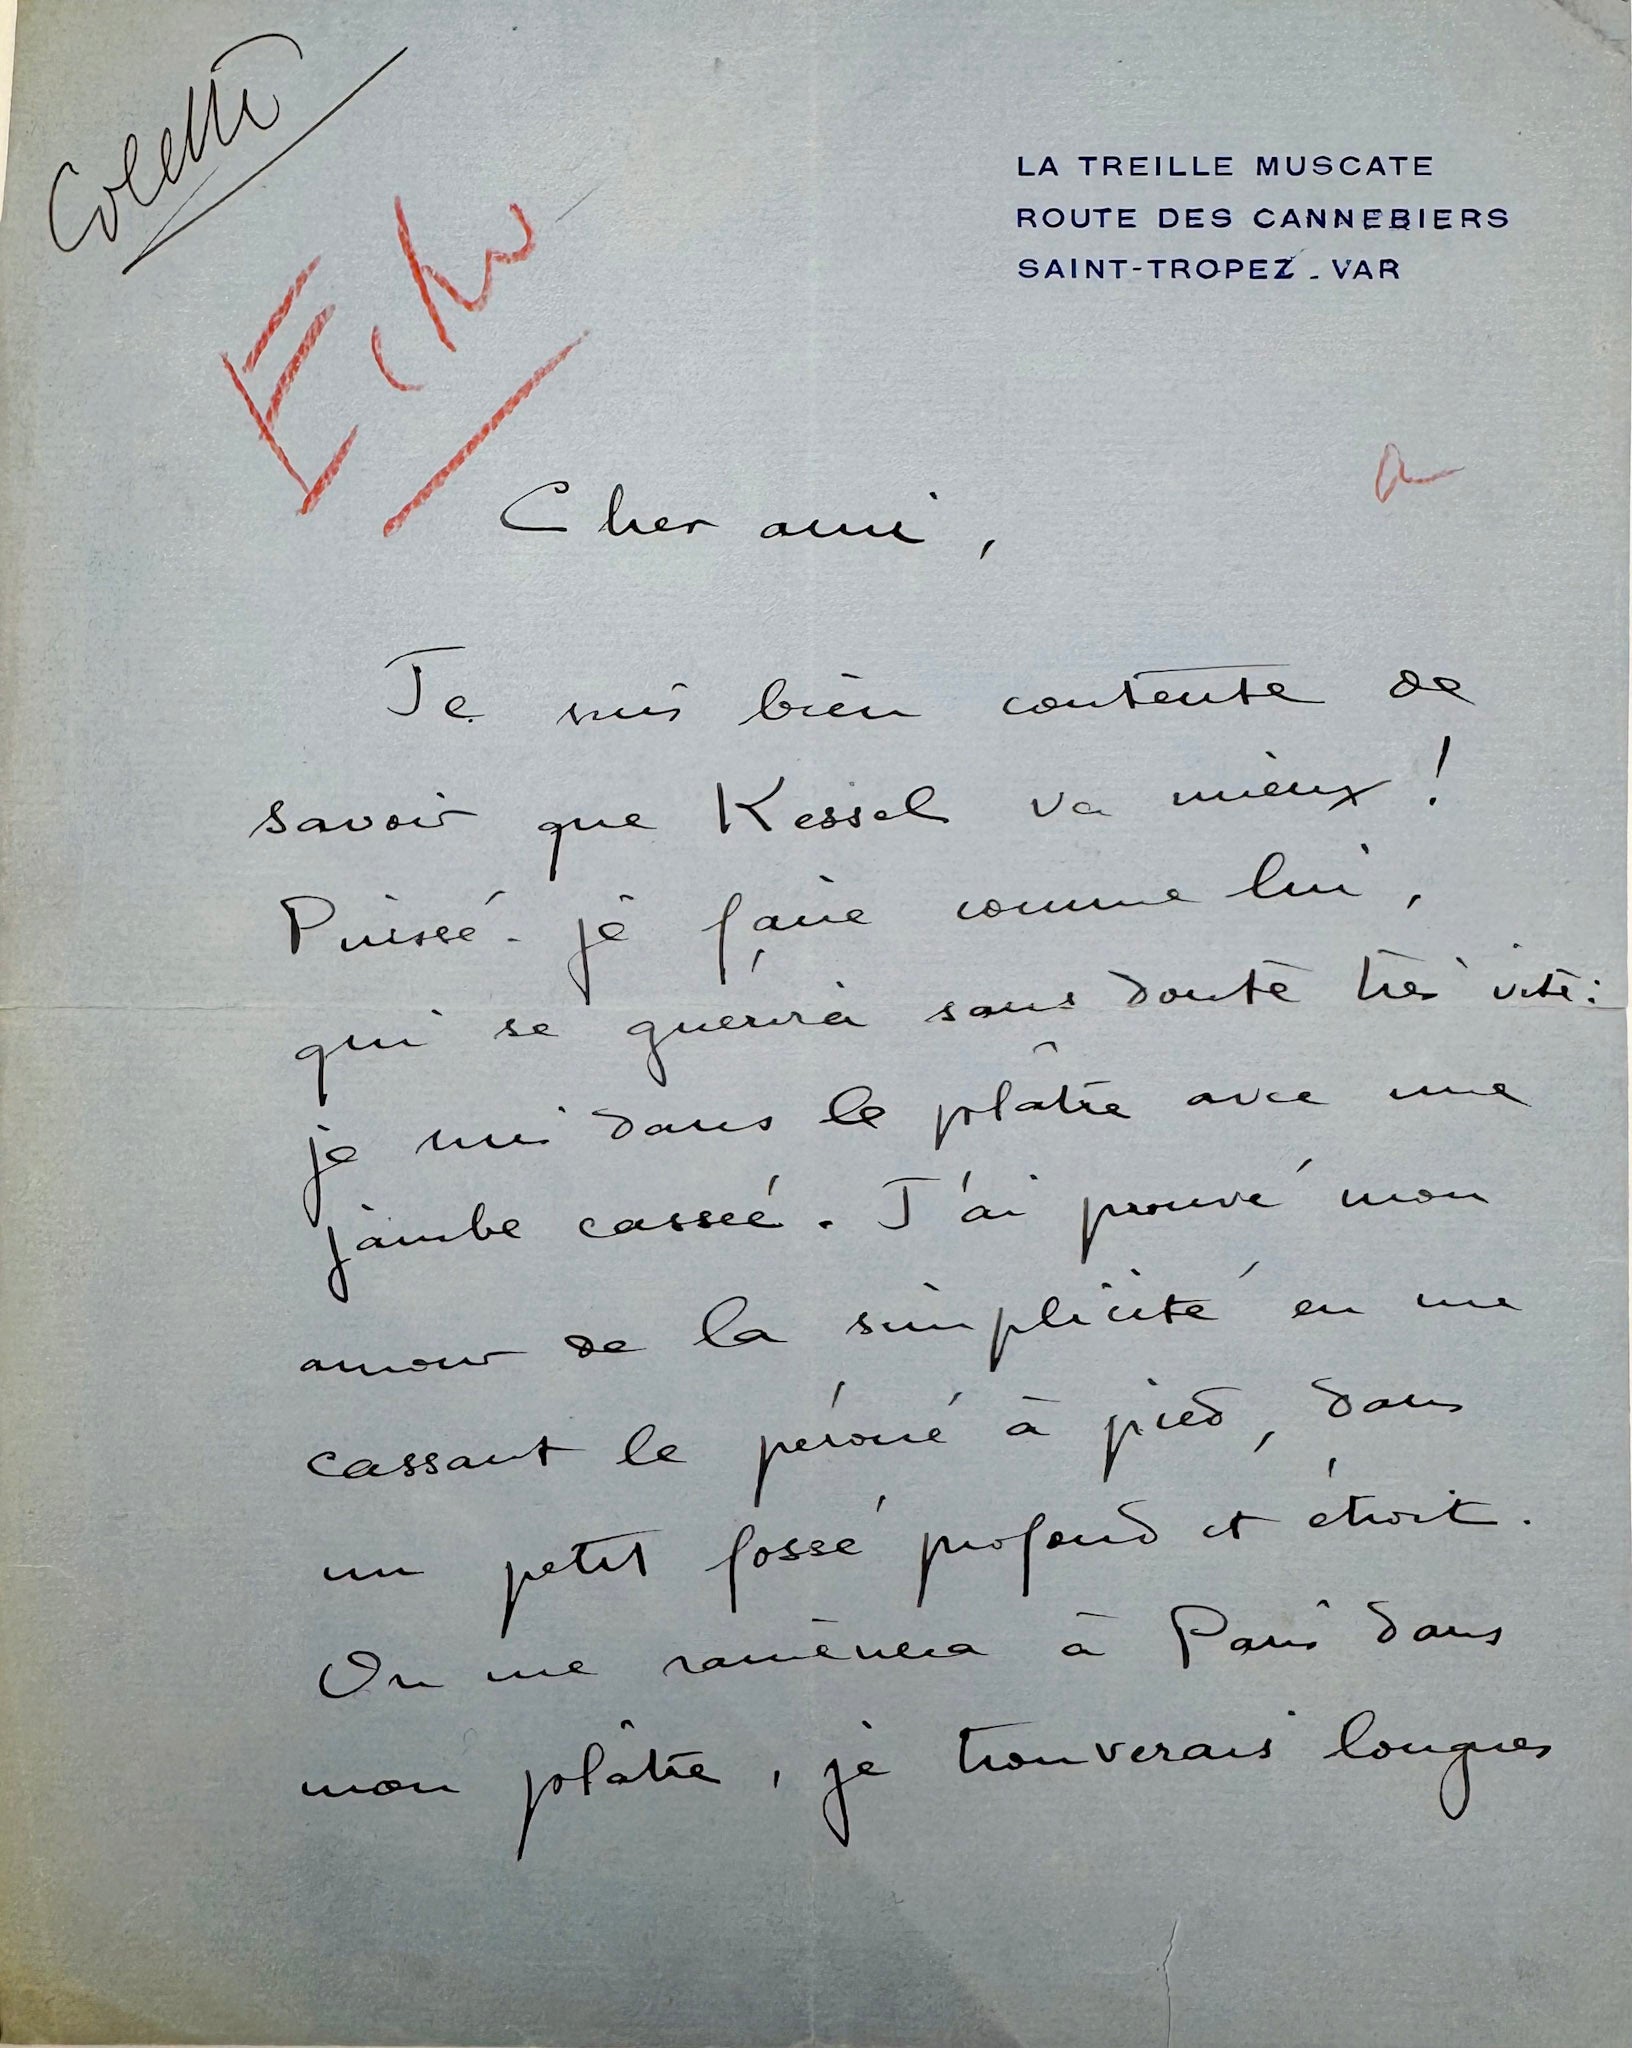 Colette
LA TREILLE MUSCATE
ROUTE DES CANNEBIERS
SAINT-TROPEZ - VAR
Cher ami,
Je suis bien contente de
savoir que Kessel va mieux !
Puissé-je faire comme lui,
qui se guérira sans doute très vite :
je suis dans le plâtre avec une
jambe cassée. J'ai prouvé mon
amour de la simplicité en me
cassant le péroné à pied, dans
un petit fossé profond et étroit.
On me ramènera à Paris dans
mon plâtre, je trouverais longues